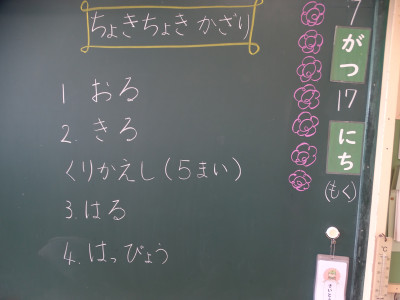 ちょきちょき かざり
1 おる
2. きる
くりかえし(5まい)
3. はる
4. はっぴょう
7
がつ
17
にち
(もく)